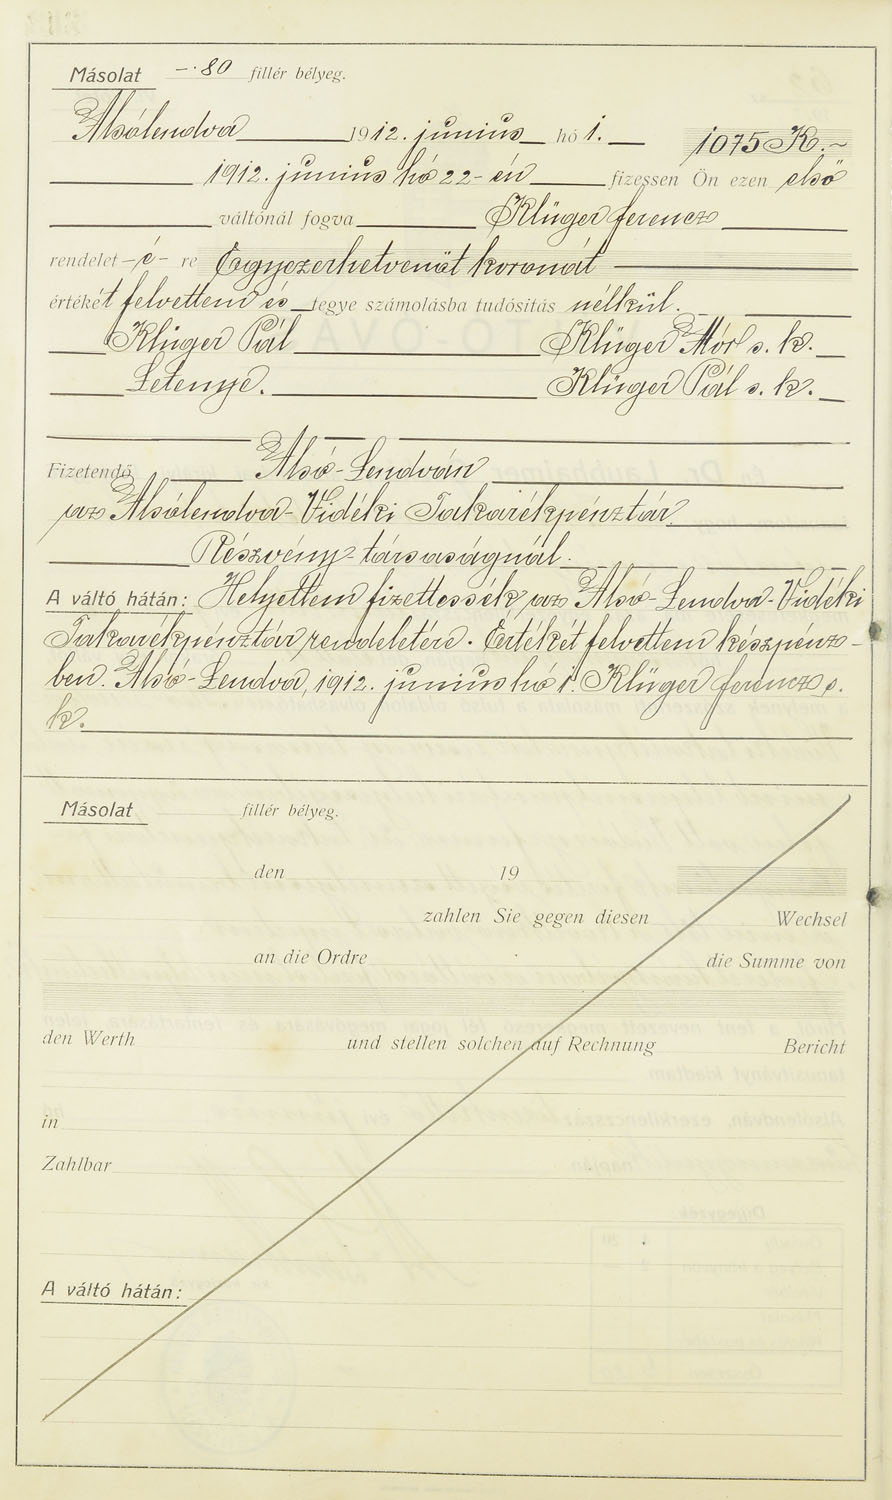 Másolat -·80 fillér bélyeg.
Alsólendva 1912. junius hó 1. 1075 K.~
1912. junius hó 22-én fizessen Ön ezen első
váltónál fogva Klüger ferencz
rendelet -é- re Egyezerhetvenöt koronát
értékét felvettem és tegye számolásba tudósitás nélkül.
Klüger Pál Klüger Mór s. k.
Letenye. Klüger Pál s. k.
Fizetendő Alsó-Lendván
az Alsólendva-Vidéki Takarékpénztár
Részvény-társaságnál.
A váltó hátán: Helyettem fizettessék az Alsó-Lendva-Vidéki
Takarékpénztár rendeletére. Értékét felvettem készpénz-
ben. Alsó-Lendva, 1912. junius hó 1. Klüger ferencz s.
k.
Másolat fillér bélyeg.
den 19
zahlen Sie gegen diesen Wechsel
an die Ordre die Summe von
den Werth und stellen solchen auf Rechnung Bericht
in
Zahlbar
A váltó hátán: